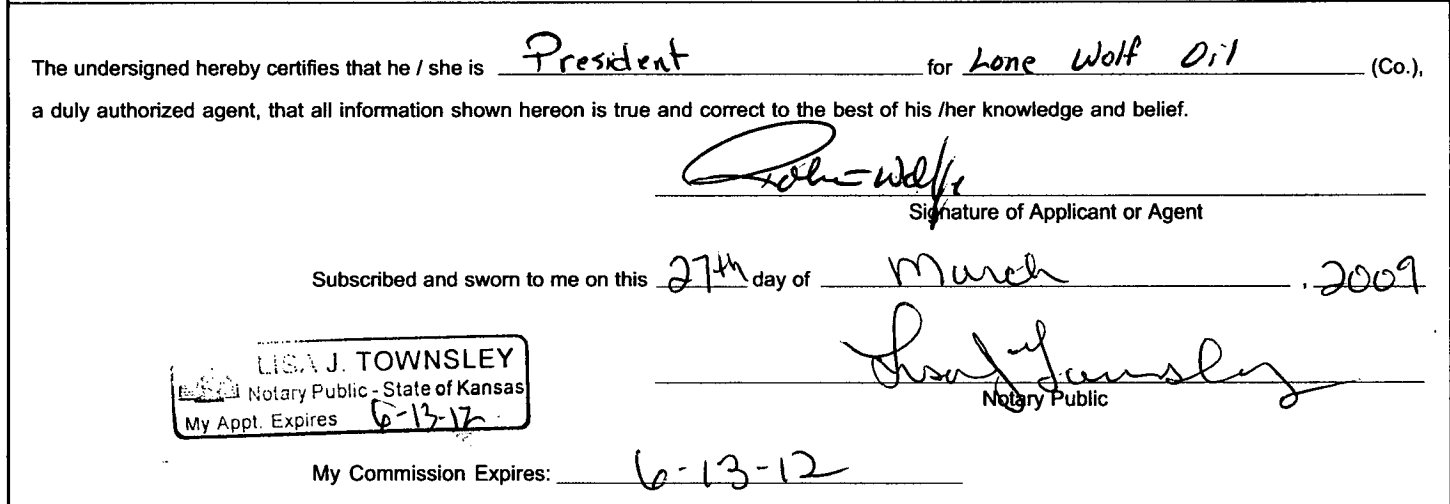 The undersigned hereby certifies that he / she is President for Lone Wolf Oil (Co.),
a duly authorized agent, that all information shown hereon is true and correct to the best of his /her knowledge and belief.
Wolfe
Signature of Applicant or Agent
Subscribed and sworn to me on this 27th day of March , 2009
LISA J. TOWNSLEY
Notary Public - State of Kansas
My Appt. Expires 6-13-12
Lisa J Townsley
Notary Public
My Commission Expires: 6-13-12